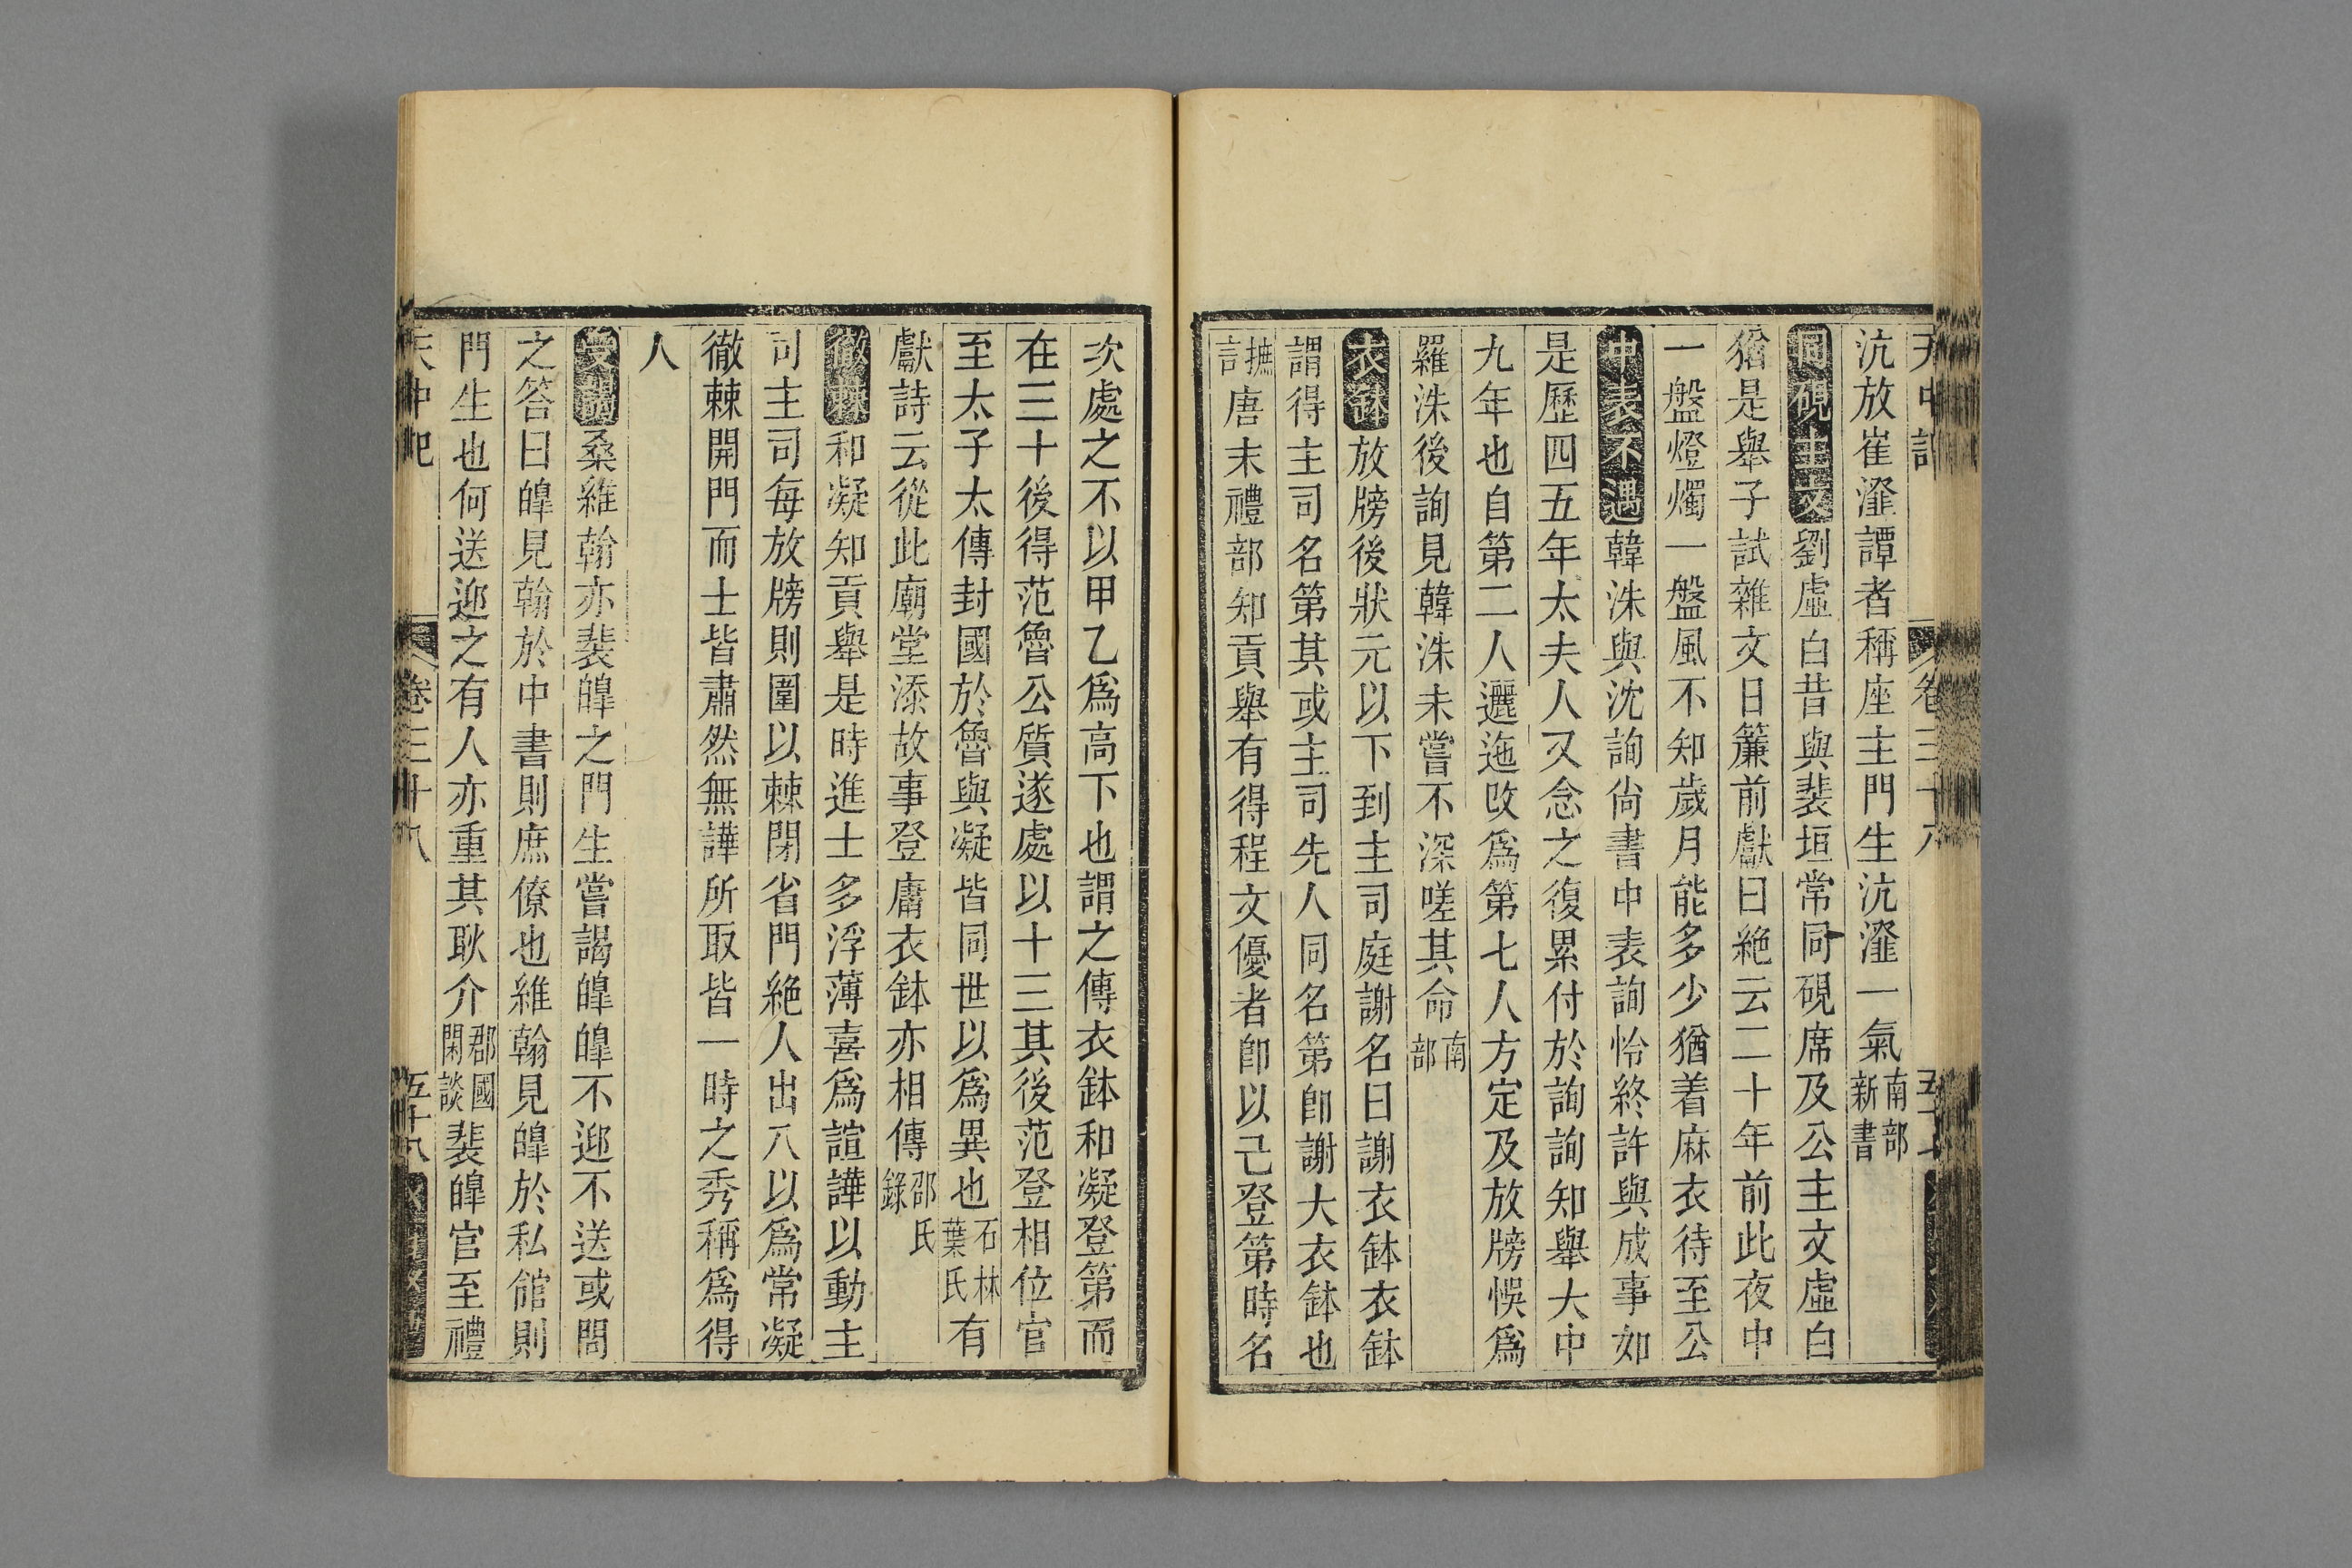 沆放崔瀣譚者稱座主門生沆瀣一氣南部新書
同硯主文劉虛白昔與裴垣常同硯席及公主文虛白
猶是舉子試雜文日簾前獻曰絶云二十年前此夜中
一盤燈燭一盤風不知歲月能多少猶着麻衣待至公
中表不遇韓洙與沈詢尙書中表詢怜終許與成事如
是歷四五年太夫人又念之復累付於詢詢知舉大中
九年也自第二人邐迤改爲第七人方定及放牓悞爲
羅洙後詢見韓洙未嘗不深嗟其命南部
衣鉢放牓後狀元以下到主司庭謝名曰謝衣鉢衣鉢
謂得主司名第其或主司先人同名第卽謝大衣鉢也
摭言唐末禮部知貢舉有得程文優者卽以己登第時名
次處之不以甲乙爲高下也謂之傳衣鉢和凝登第而
在三十後得范魯公質遂處以十三其後范登相位官
至太子太傅封國於魯與凝皆同世以爲異也石林葉氏有
獻詩云從此廟堂添故事登庸衣鉢亦相傳邵氏錄
徹棘和凝知貢舉是時進士多浮薄喜爲諠譁以動主
司主司每放牓則圍以棘閉省門絶人出入以爲常凝
徹棘開門而士皆肅然無譁所取皆一時之秀稱爲得
人
受謁桑維翰亦裴皥之門生嘗謁皥皥不迎不送或問
之答曰皥見翰於中書則庶僚也維翰見皥於私舘則
門生也何送迎之有人亦重其耿介郡國閑談裴皥官至禮
天中記 卷三十八 五十八